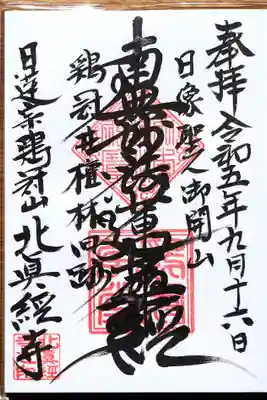 奉拝 令和五年九月十六日
日像聖人御開山
南無妙法蓮華經
鶏冠井檀林旧跡
日蓮宗鶏冠山北真経寺